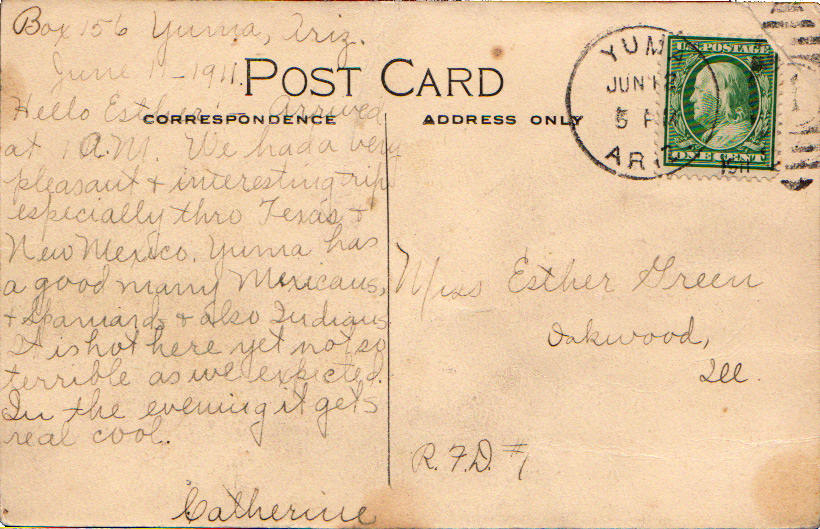 Box 156 Yuma, Ariz.
June 11-1911.
POST CARD
CORRESPONDENCE
ADDRESS ONLY
Hello Esther:- Arrived
at 1 A.M. We had a very
pleasant & interesting trip
especially thro Texas &
New Mexico. Yuma has
a good many Mexicans,
& Spaniards & also Indians
It is hot here yet not so
terrible as we expected.
In the evening it gets
real cool.
Catherine
YUMA
JUN 12
5 P
ARIZ
U.S. POSTAGE
ONE CENT
Miss Esther Green
Oakwood,
Ill.
R.F.D. #1